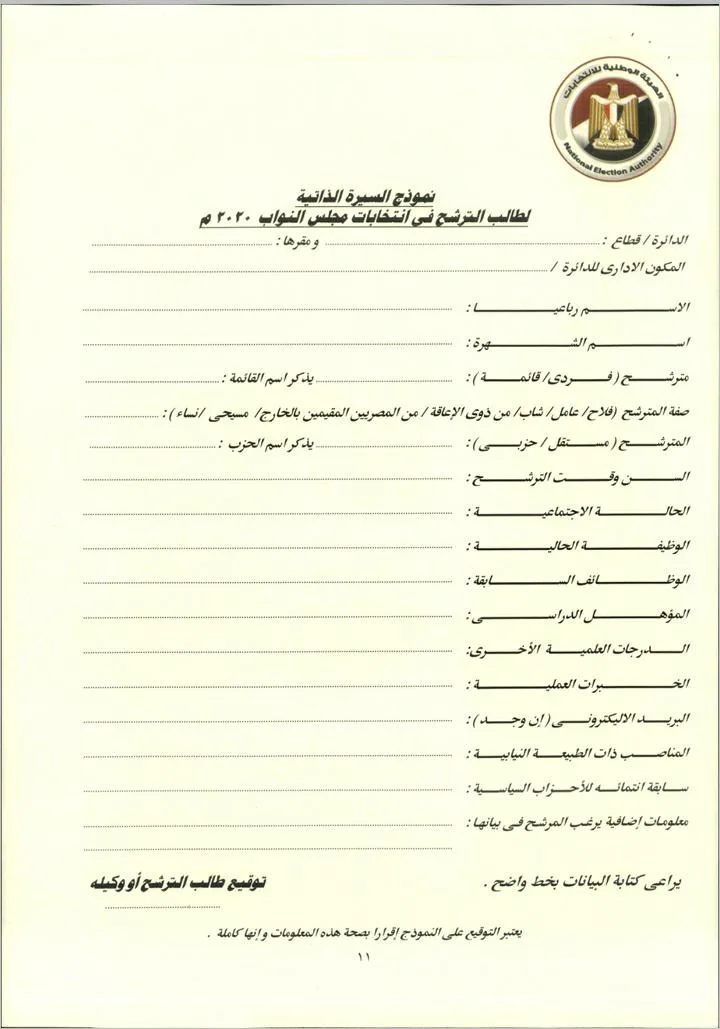 الهيئة الوطنية للانتخابات
National Election Authority
نموذج السيرة الذاتية
لطالب الترشح فى انتخابات مجلس النواب ٢٠٢٠ م
الدائرة / قطاع : ومقرها :
المكون الادارى للدائرة /
الاســـم رباعيـــا :
اســـم الشـــهرة :
مترشـــح ( فـــردى/ قائمـــة ) : يذكر اسم القائمة :
صفة المترشح (فلاح/ عامل/ شاب/ من ذوى الإعاقة / من المصريين المقيمين بالخارج/ مسيحى /نساء ) :
المترشـــح ( مســـتقل / حزبـــى ) : يذكر اسم الحزب :
الســـن وقـــت الترشـــح :
الحالـــة الاجتماعيـــة :
الوظيفـــة الحاليـــة :
الوظـــائف الســـابقة :
المؤهـــل الدراســـى :
الـــدرجات العلميـــة الأخـــرى:
الخـــبرات العمليـــة :
البريـــد الاليكترونـــى ( إن وجـــد ) :
المناصـــب ذات الطبيعـــة النيابيـــة :
ســـابقة انتمائـــه للأحـــزاب السياســـية :
معلومات إضافية يرغب المرشح فى بيانها :
يراعى كتابة البيانات بخط واضح .
توقيع طالب الترشح أو وكيله
يعتبر التوقيع على النموذج إقرارا بصحة هذه المعلومات و إنها كاملة .
١١